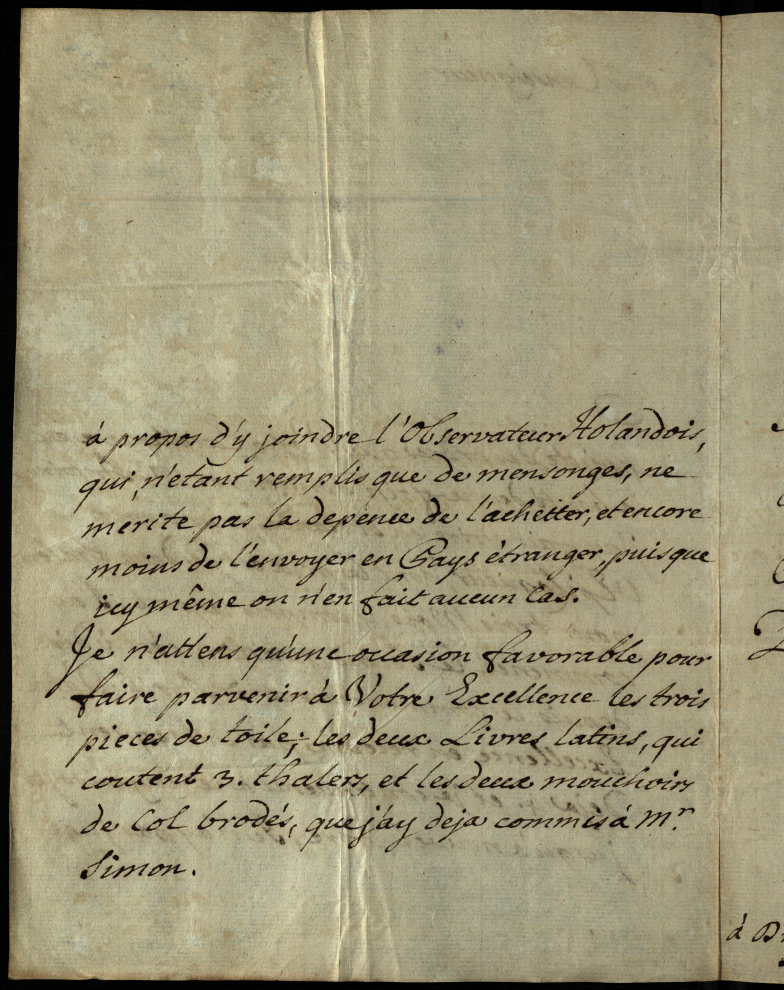 à propos d'y joindre l'Observateur Holandois,
qui n'etant remplis que de mensonges, ne
merite pas la depence de l'achetter, et encore
moins de l'envoyer en Pays étranger, puisque
icy même on n'en fait aucun Cas.
Je n'attens qu'une occasion favorable pour
faire parvenir à Votre Excellence les trois
pieces de toile; les deux Livres latins, qui
coutent 3. thalers, et les deux mouchoirs
de Col brodés, que j'ay deja commis á Mr.
Simon.
à